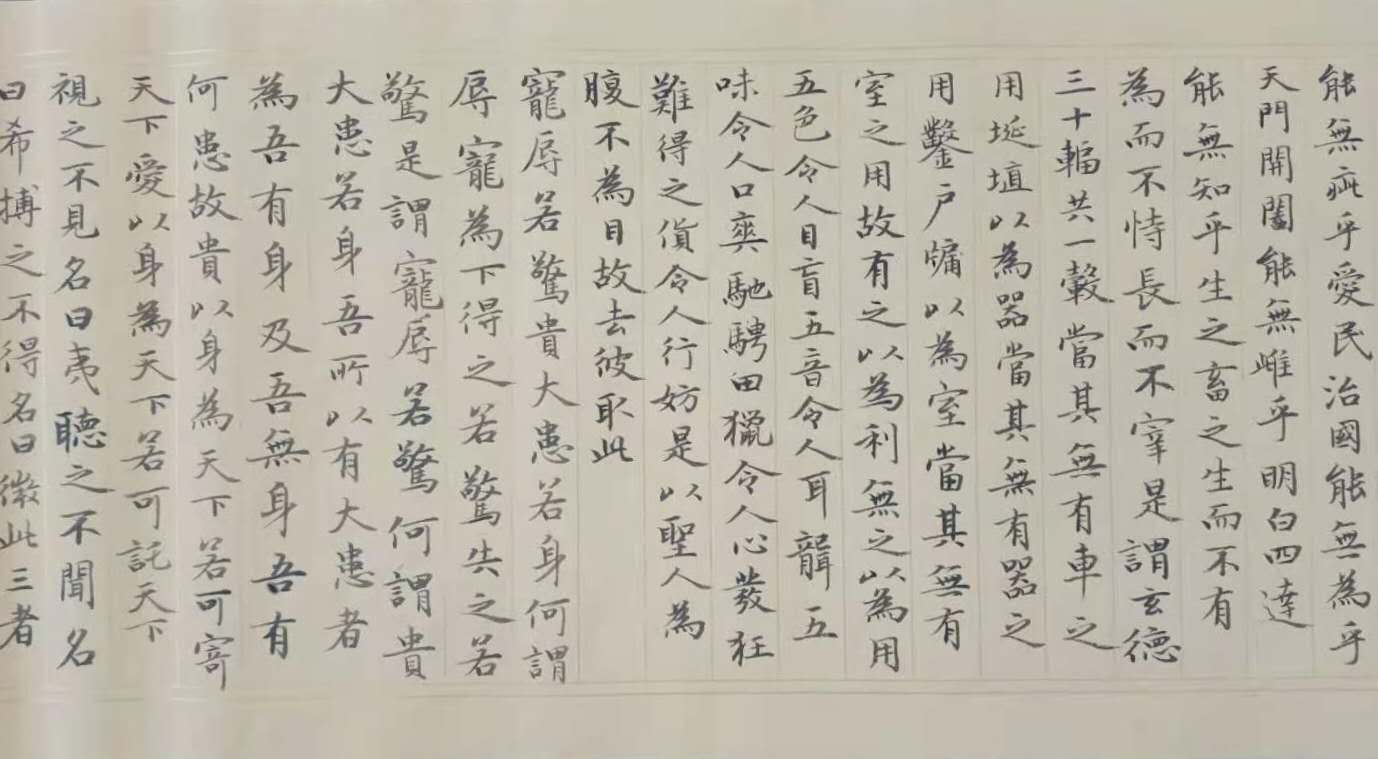 能無疵乎愛民治國能無為乎
天門開闔能無雌乎明白四達
能無知乎生之畜之生而不有
為而不恃長而不宰是謂玄德
三十輻共一轂當其無有車之
用埏埴以為器當其無有器之
用鑿戶牖以為室當其無有
室之用故有之以為利無之以為用
五色令人目盲五音令人耳聾五
味令人口爽馳騁田獵令人心發狂
難得之貨令人行妨是以聖人為
腹不為目故去彼取此
寵辱若驚貴大患若身何謂
辱寵為下得之若驚失之若
驚是謂寵辱若驚何謂貴
大患若身吾所以有大患者
為吾有身及吾無身吾有
何患故貴以身為天下若可寄
天下愛以身為天下若可託天下
視之不見名曰夷聽之不聞名
曰希搏之不得名曰微此三者